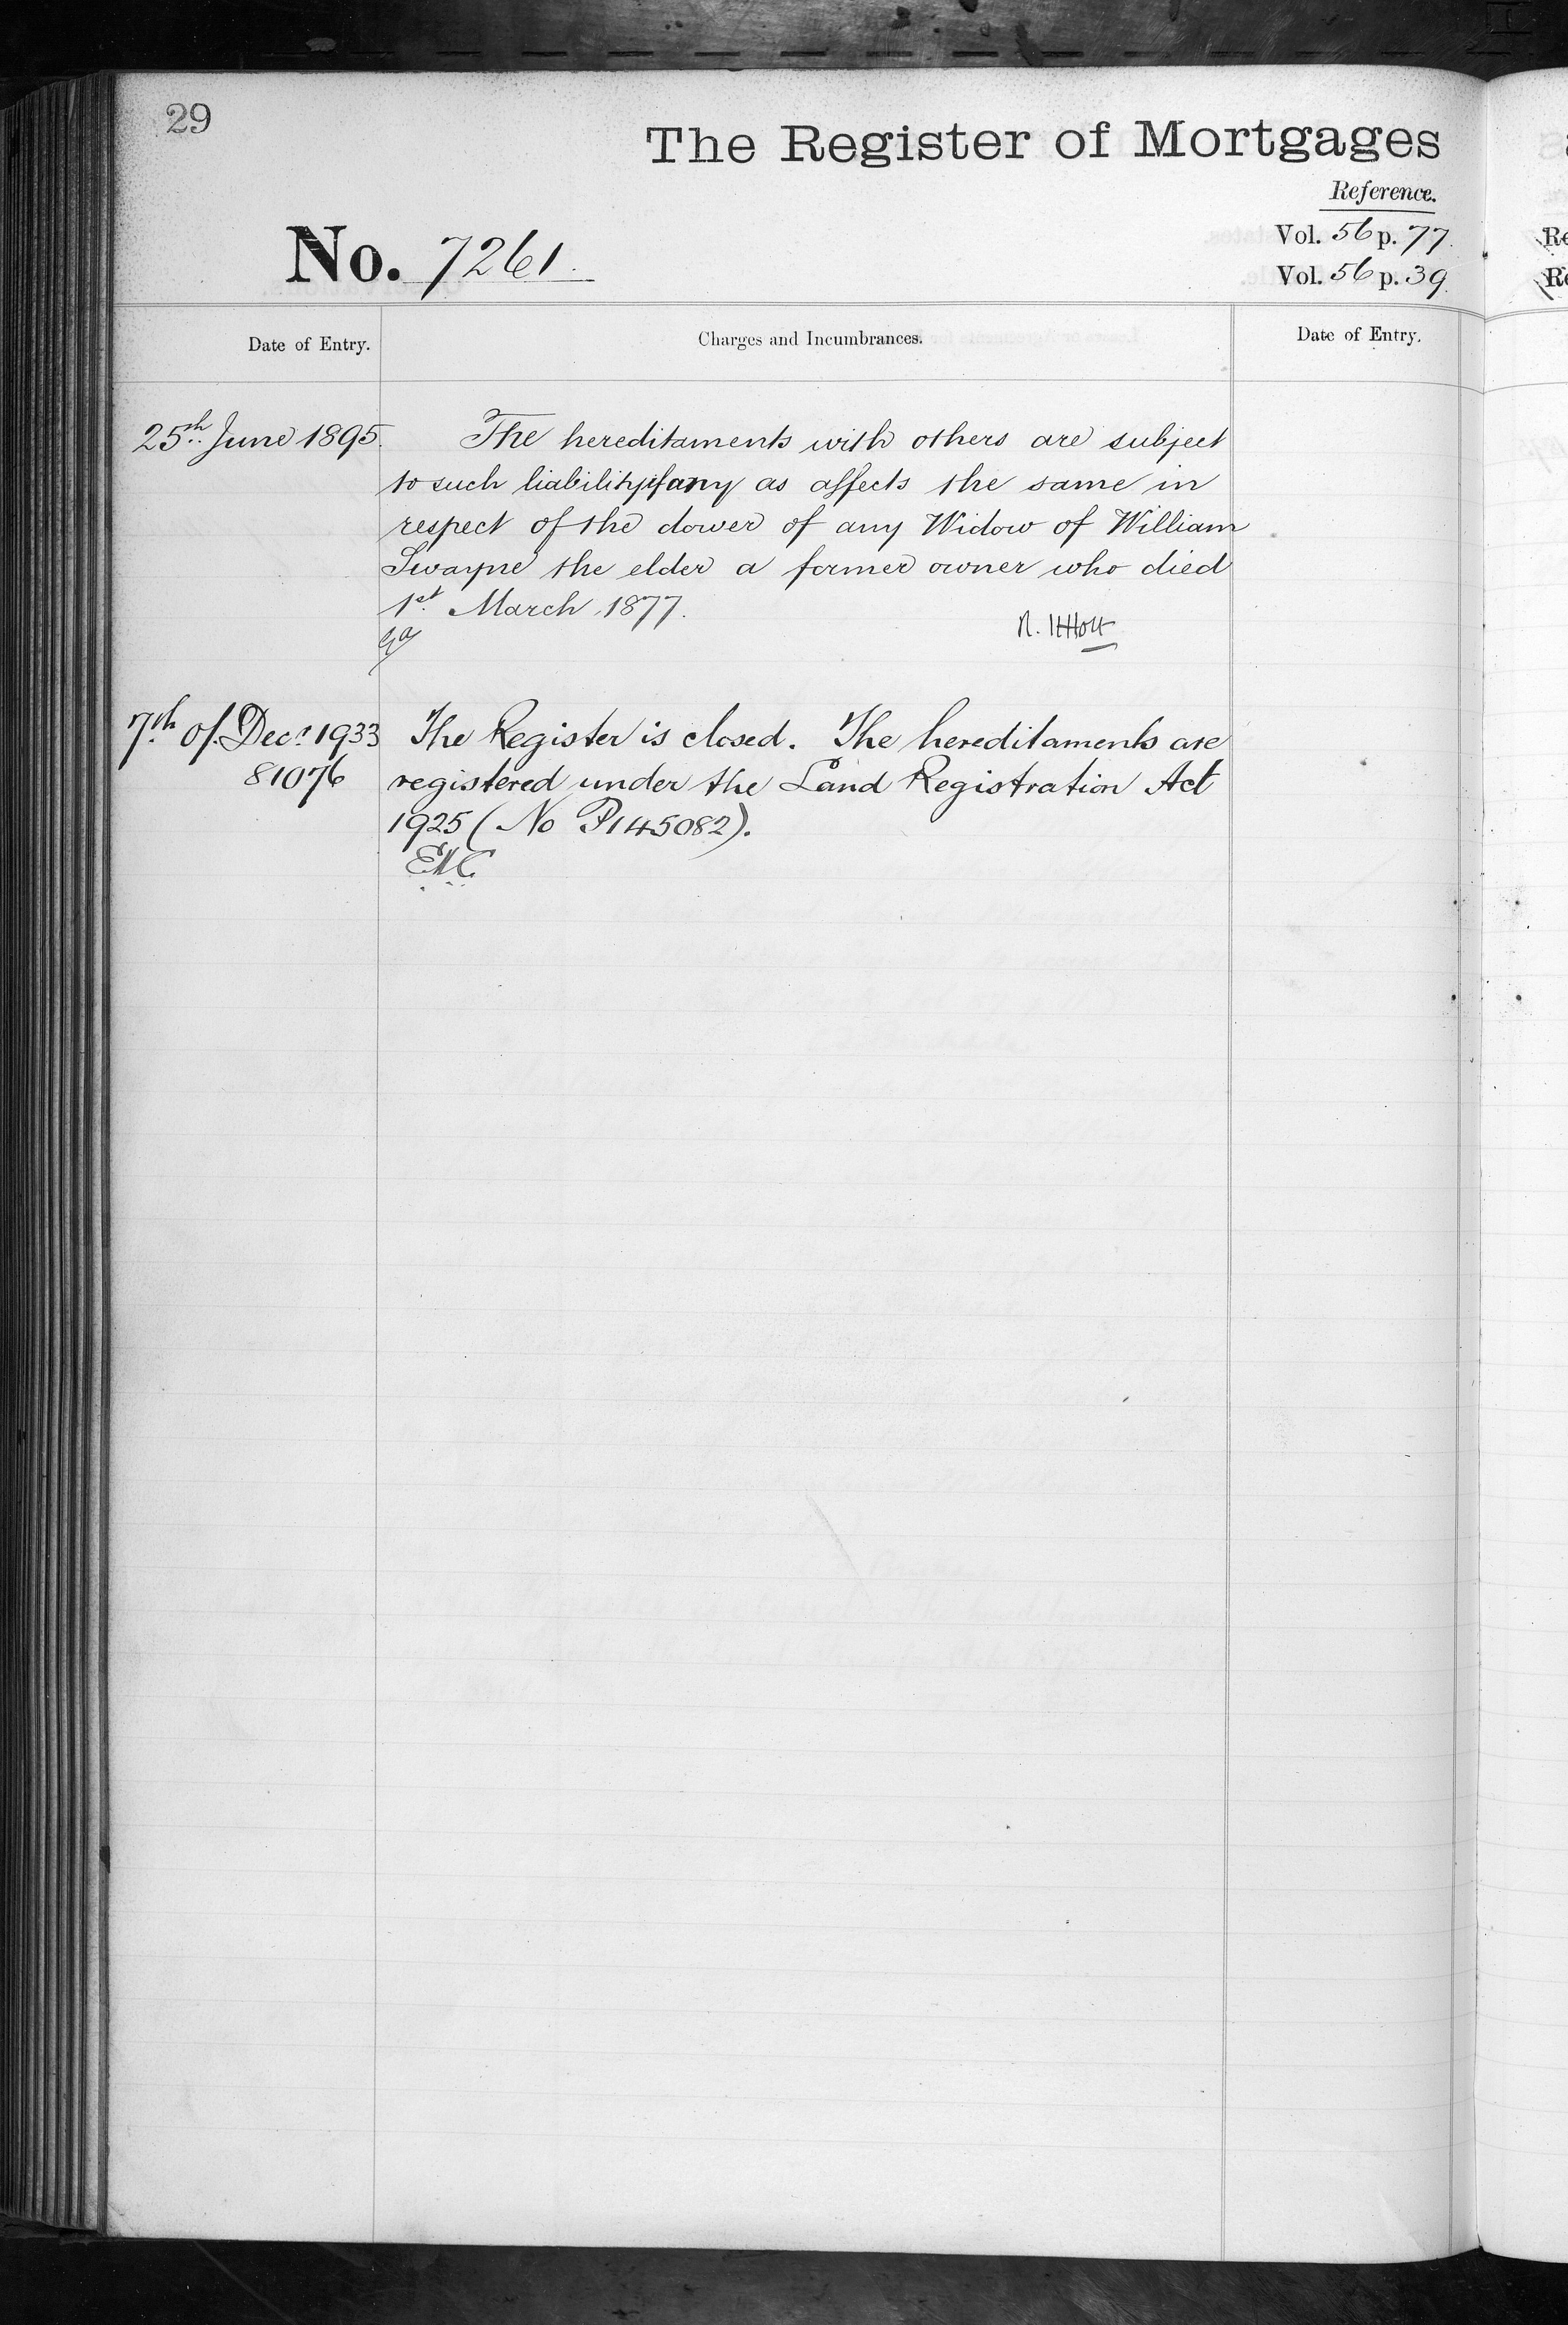 29
The Register of Mortgages
Reference.
No. 7261.
Vol. 56 p. 77.
Vol. 56 p. 39.
Date of Entry.
Charges and Incumbrances.
Date of Entry.
25th June 1895.
The hereditaments with others are subject
to such liability if any as affects the same in
respect of the dower of any Widow of William
Swayne the elder a former owner who died
1st March 1877.
7th of Decr 1933
81076
The Register is closed. The hereditaments are
registered under the Land Registration Act
1925 (No P145082).
EMC